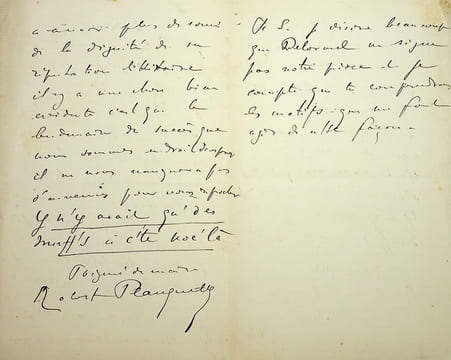 a avoir plus de souci
de la dignité de sa
réputation littéraire
il y a une chose bien
évidente c'est que le
lendemain du succès que
nous sommes en droit d'espérer
il ne nous manquera pas
d'ennemis pour nous
Il n'y avait qu'des
à c'te noc'là
Poignée de main
Robert Planquette
P S. Je désire beaucoup
que Delormel ne signe
pas notre pièce et je
compte que tu comprendras
les motifs qui me font
agir de cette façon –